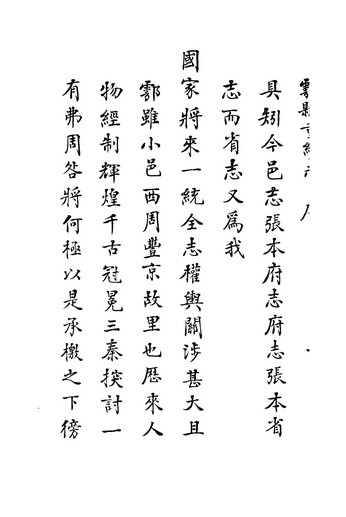 具矧今邑志張本府志府志張本省
志而省志又爲我
國家將來一統全志權輿關涉甚大且
鄠雖小邑西周豐京故里也歷來人
物經制輝煌千古冠冕三秦探討一
有弗周咎將何極以是承檄之下徬